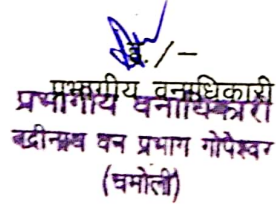 ह./-
प्रभागीय वनाधिकारी
प्रभागीय वनाधिकारी
बद्रीनाथ वन प्रभाग गोपेश्वर
(चमोली)